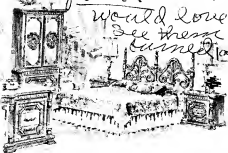 would love
see them
turned